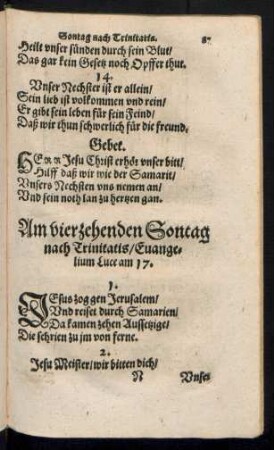 Sontag nach Trinitatis. 87
Heilt vnser sünden durch sein Blut/
Das gar kein Gesetz noch Opffer thut.
14.
Vnser Nechster ist er allein/
Sein lieb ist volkommen vnd rein/
Er gibt sein leben für sein Feind/
Daß wir thun schwerlich für die freund.
Gebet.
HErr Jesu Christ erhör vnser bitt/
Hilff daß wir wie der Samarit/
Vnsers Nechsten vns nemen an/
Vnd sein noth lan zu hertzen gan.
Am vierzehenden Sontag
nach Trinitatis/Euange-
lium Luce am 17.
1.
JEsus zog gen Jerusalem/
Vnd reiset durch Samarien/
Da kamen zehen Aussetzige/
Die schrien zu jm von ferne.
2.
Jesu Meister/wir bitten dich/
N Vnser